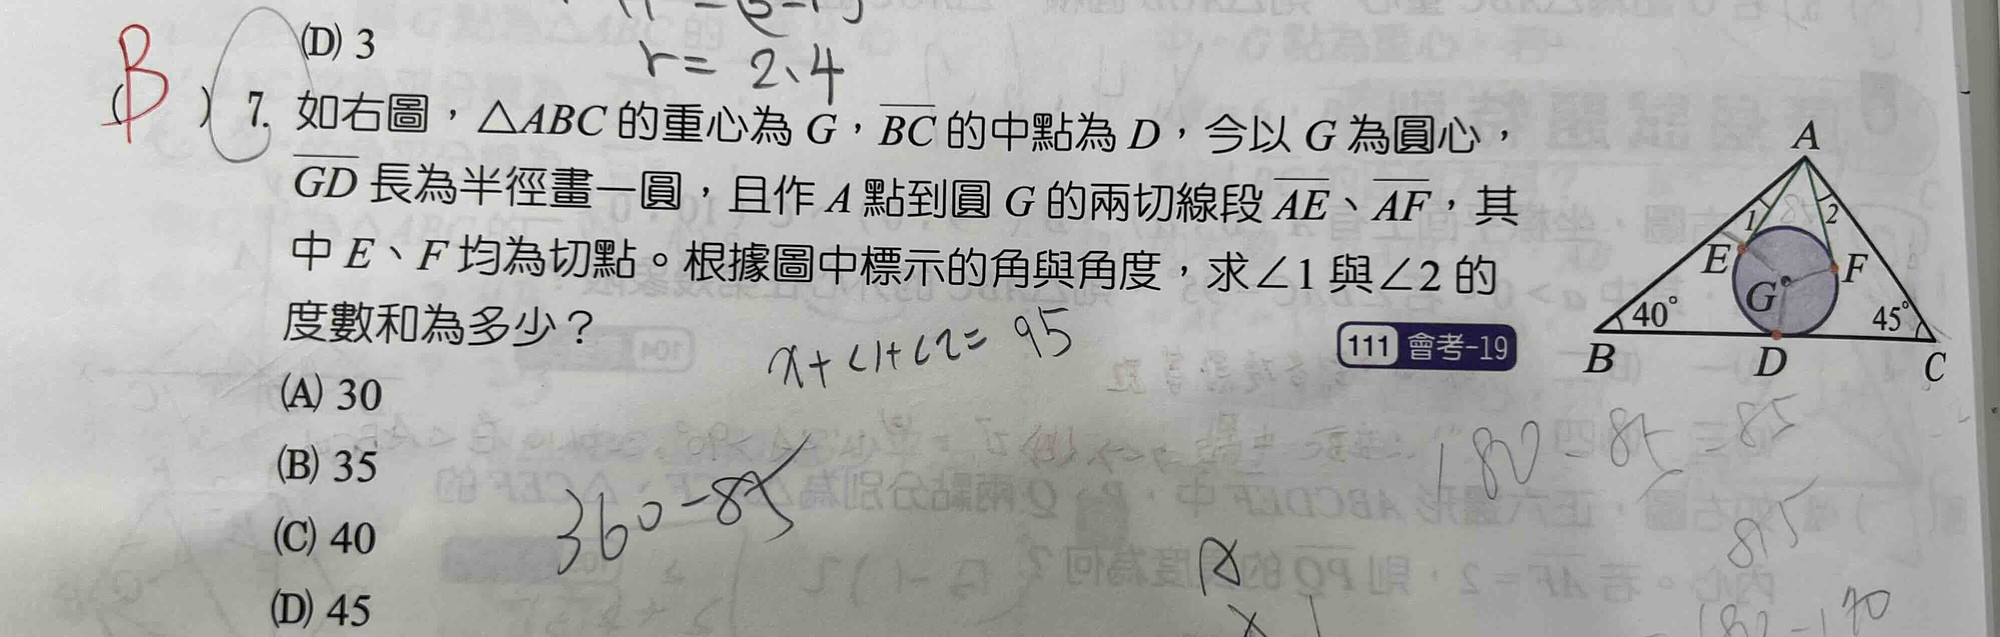 (D) 3
r = 2.4
(B) 7. 如右圖，△ABC 的重心為 G，BC 的中點為 D，今以 G 為圓心，
GD 長為半徑畫一圓，且作 A 點到圓 G 的兩切線段 AE、AF，其
中 E、F 均為切點。根據圖中標示的角與角度，求∠1 與∠2 的
度數和為多少？
111 會考-19
x+∠1+∠2= 95
(A) 30
(B) 35
(C) 40
(D) 45
A
1 2
E F
G
40° 45°
B D C
360-85
180-85=85